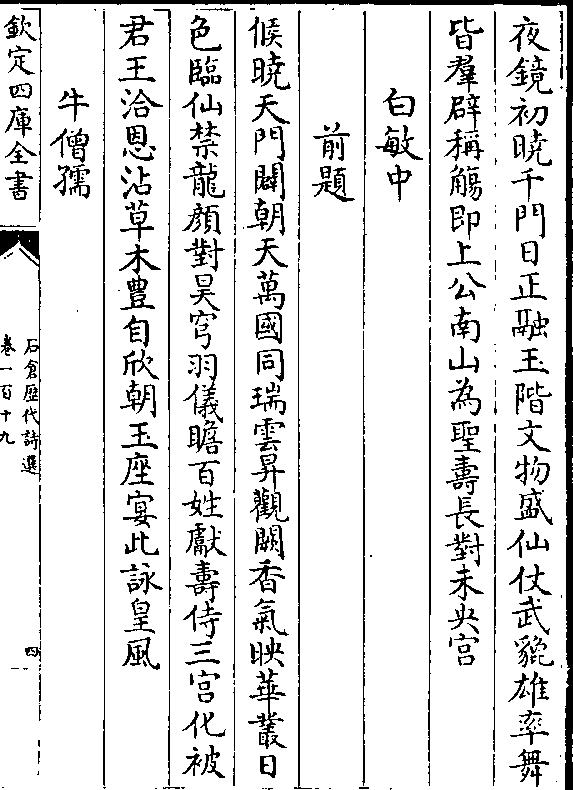 夜鏡初曉千門日正融玉階文物盛仙仗武貔雄率舞
皆羣辟稱觴即上公南山為聖壽長對未央宫
白敏中
前題
候曉天門闢朝天萬國同瑞雲昇觀闕香氣映華叢日
色臨仙禁龍顔對昊穹羽儀瞻百姓獻壽侍三宫化被
君王洽恩沾草木豊自欣朝玉座宴此詠皇風
牛僧孺
欽定四庫全書
石倉歴代詩選
卷一百十九
四